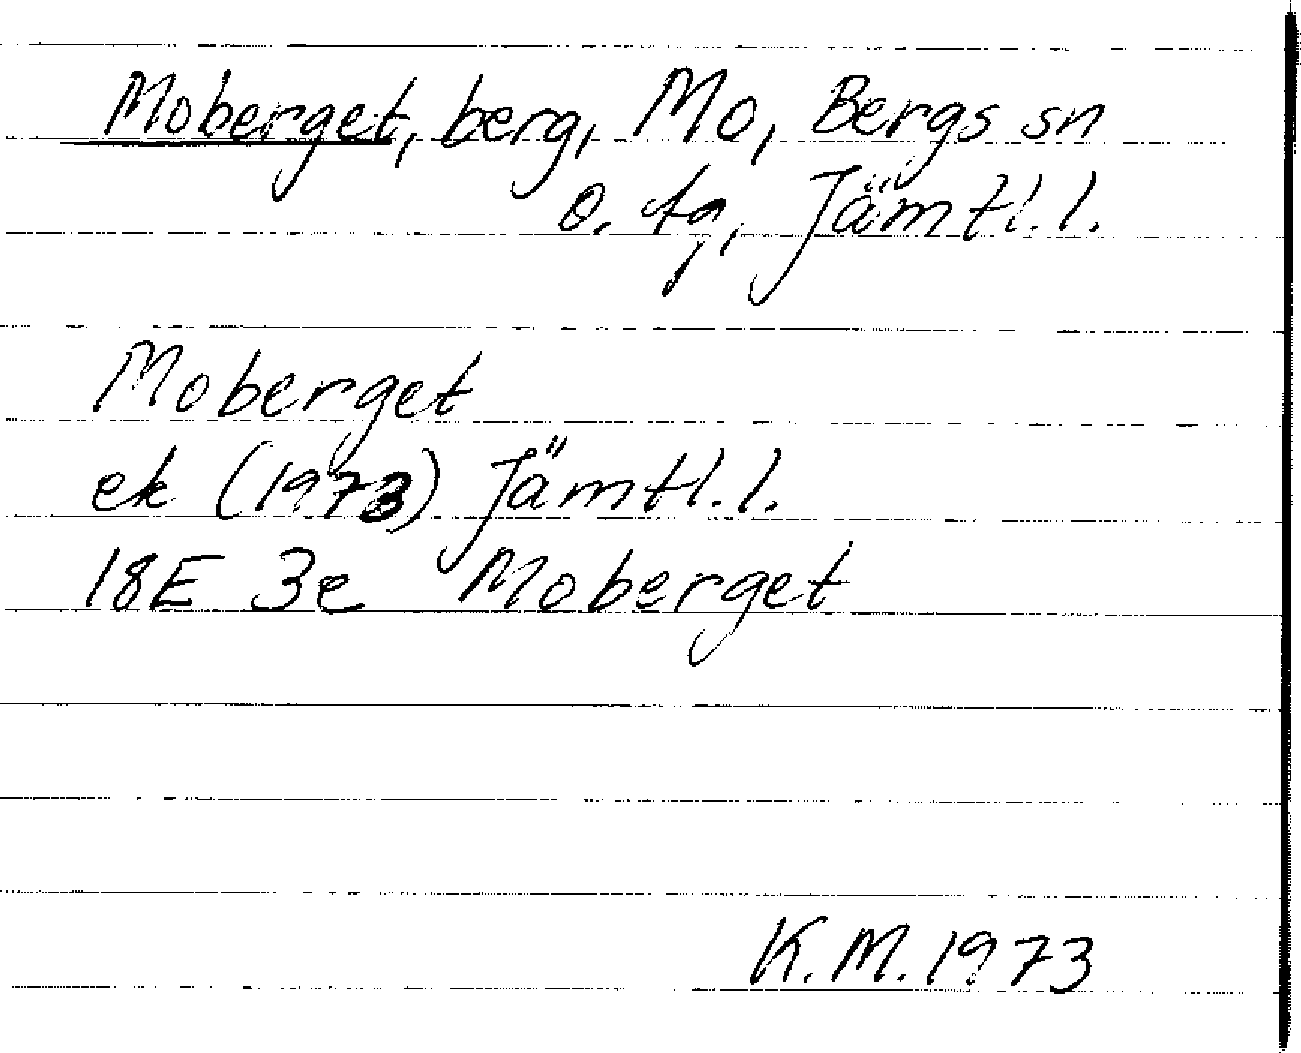 Moberget, berg, Mo, Bergs sn
o. tg, Jämtl. l.
Moberget
ek (1973) Jämtl. l.
18E 3e Moberget
K.M. 1973